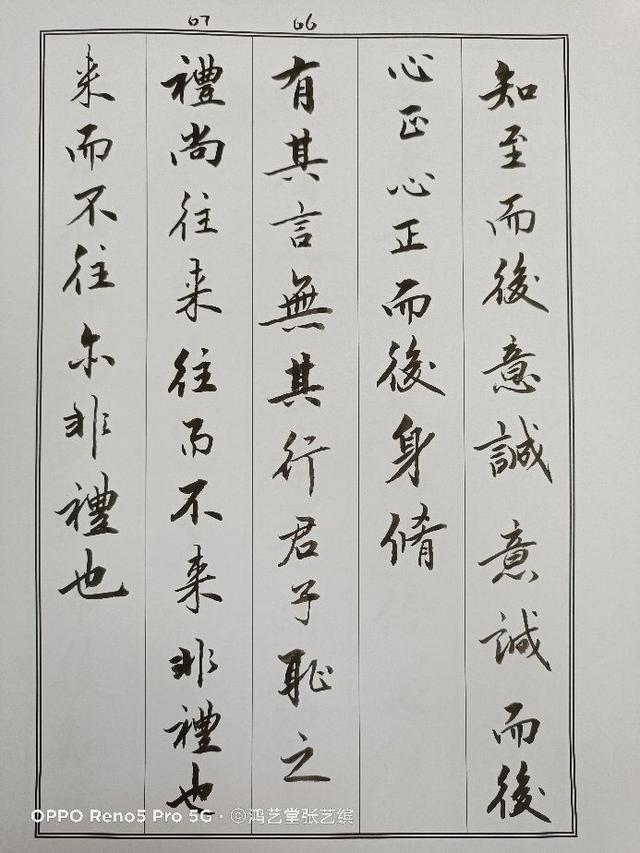 67 66
知至而後意誠意誠而後
心正心正而後身脩
有其言無其行君子恥之
禮尚往来往而不来非禮也
来而不往亦非禮也
OPPO Reno5 Pro 5G · ©鸿艺堂张艺缤